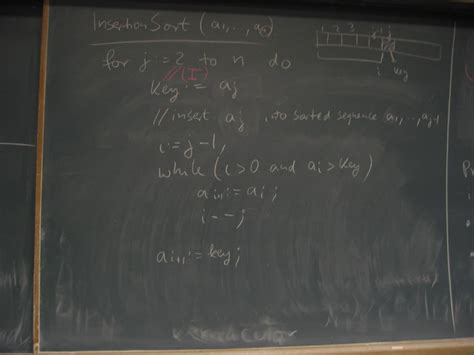 InsertionSort (a1,..,an)
1 2 3 j
i key
for j := 2 to n do
//(I)
key := aj
//insert aj into sorted sequence a1,..,aj-1
i := j-1;
while (i>0 and ai > key)
ai+1 := ai;
i--;
ai+1 := key;